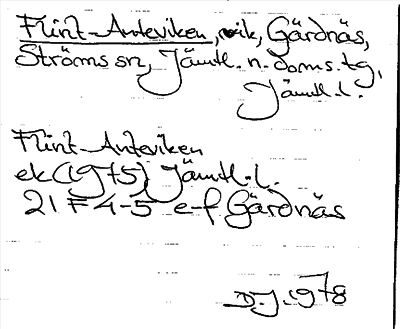 Flint-Anteviken, vik, Gärdnäs,
Ströms sn, Jämtl. n. doms. tg,
Jämtl. l.
Flint-Anteviken
ek (1975) Jämtl. l.
21 F 4-5 e-f Gärdnäs
D.J. 1978